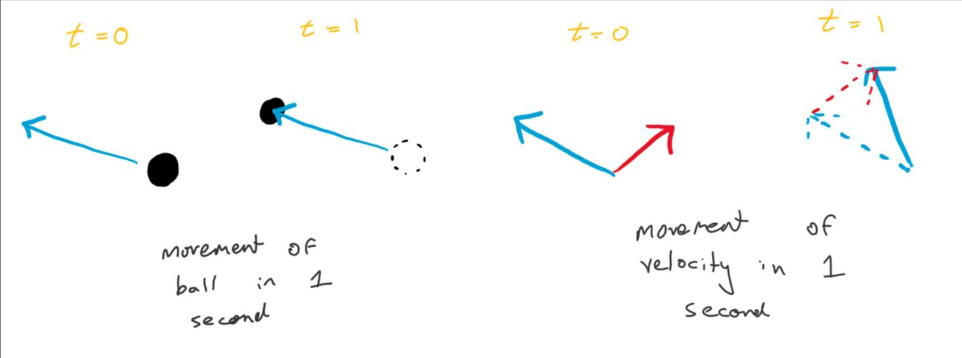 t = 0
t = 1
t = 0
t = 1
movement of
ball in 1
second
movement of
velocity in 1
second